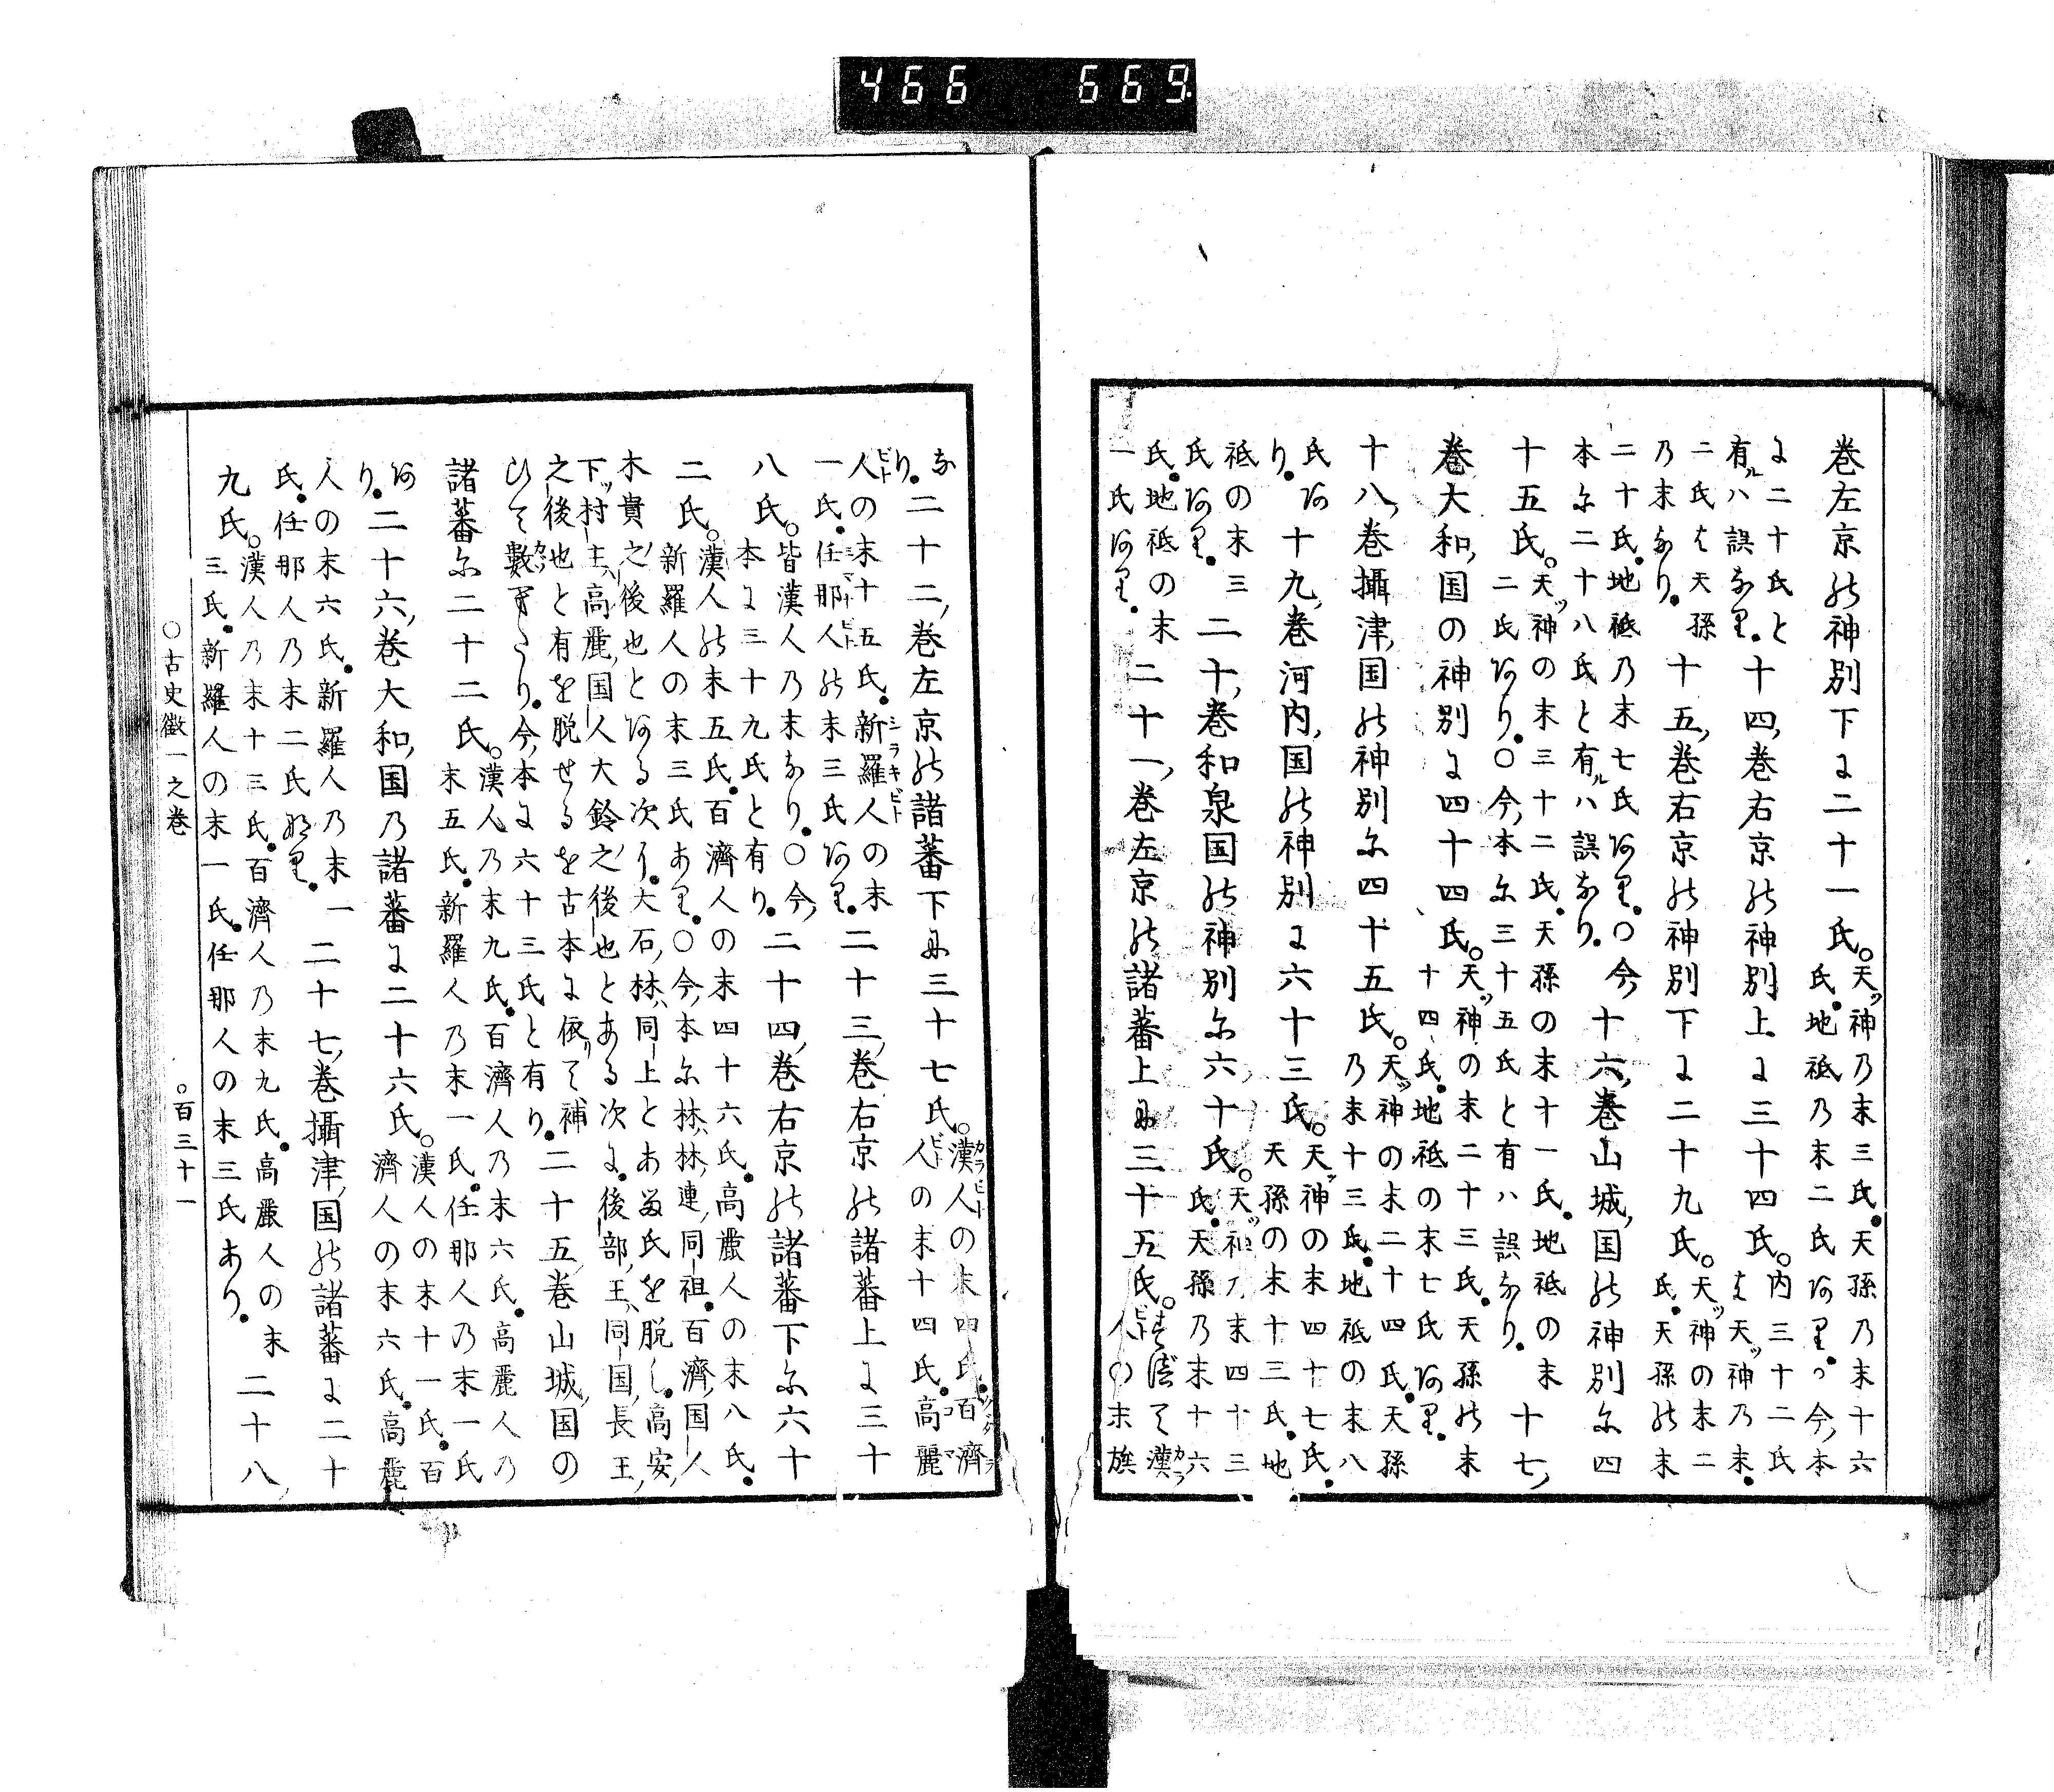 466 669
巻左京乃神別下に二十一氏。天ッ神乃末三氏。天孫乃末十六
氏。地祇乃末二氏あり。○今本
に二十氏と
有ルハ誤なり。十四巻右京乃神別上に三十四氏。内三十二氏
は天ッ神乃末。
二氏は天孫
乃末なり。十五巻右京乃神別下に二十九氏。天ッ神の末二
氏。天孫乃末
二十氏。地祇乃末七氏あり。○今
本に二十八氏と有ルハ誤なり。十六巻山城国乃神別に四
十五氏。天ッ神の末三十二氏。天孫の末十一氏。地祇の末
二氏あり。○今本に三十五氏と有ハ誤なり。十七
巻大和国の神別に四十四氏。天ッ神の末二十三氏。天孫乃末
十四氏。地祇の末七氏あり。
十八巻攝津国乃神別に四十五氏。天ッ神の末二十四氏。天孫
乃末十三氏。地祇の末八
氏あ
り。十九巻河内国乃神別に六十三氏。天ッ神の末四十七氏。
天孫の末十三氏。地
祇の末三
氏あり。二十巻和泉国乃神別に六十氏。天ッ神ノ末四十三
氏。天孫乃末十六
氏。地祇の末
一氏あり。二十一巻左京乃諸蕃上に三十五氏。漢
人の末族
な
り。二十二巻左京乃諸蕃下に三十七氏。漢人の末四氏。百濟
人の末十四氏。高麗
人の末十五氏。新羅人の末
一氏。任那人乃末三氏あり。二十三巻右京乃諸蕃上に三十
八氏。皆漢人乃末なり。○今
本に三十九氏と有り。二十四巻右京乃諸蕃下に六十
二氏。漢人乃末五氏。百濟人の末四十六氏。高麗人の末八氏。
新羅人の末三氏あり。○今本に林林連同祖。百濟国人
木貴之後也とある次に。大石林同上とある氏を脱し。高安
下村主高麗国人大鈴之後也とある次に。後部王同国長王
之後也と有を脱せるを古本に依て補
ひて數へたり。今本に六十三氏と有り。二十五巻山城国の
諸蕃に二十二氏。漢人乃末九氏。百濟人乃末六氏。高麗人乃
末五氏。新羅人乃末一氏。任那人乃末一氏
あ
り。二十六巻大和国乃諸蕃に二十六氏。漢人の末十一氏。百
濟人の末六氏。高麗
人の末六氏。新羅人乃末一
氏。任那人乃末二氏なり。二十七巻攝津国乃諸蕃に二十
九氏。漢人乃末十三氏。百濟人乃末九氏。高麗人の末
三氏。新羅人の末一氏。任那人の末三氏あり。二十八
○古史徴一之巻
○百三十一